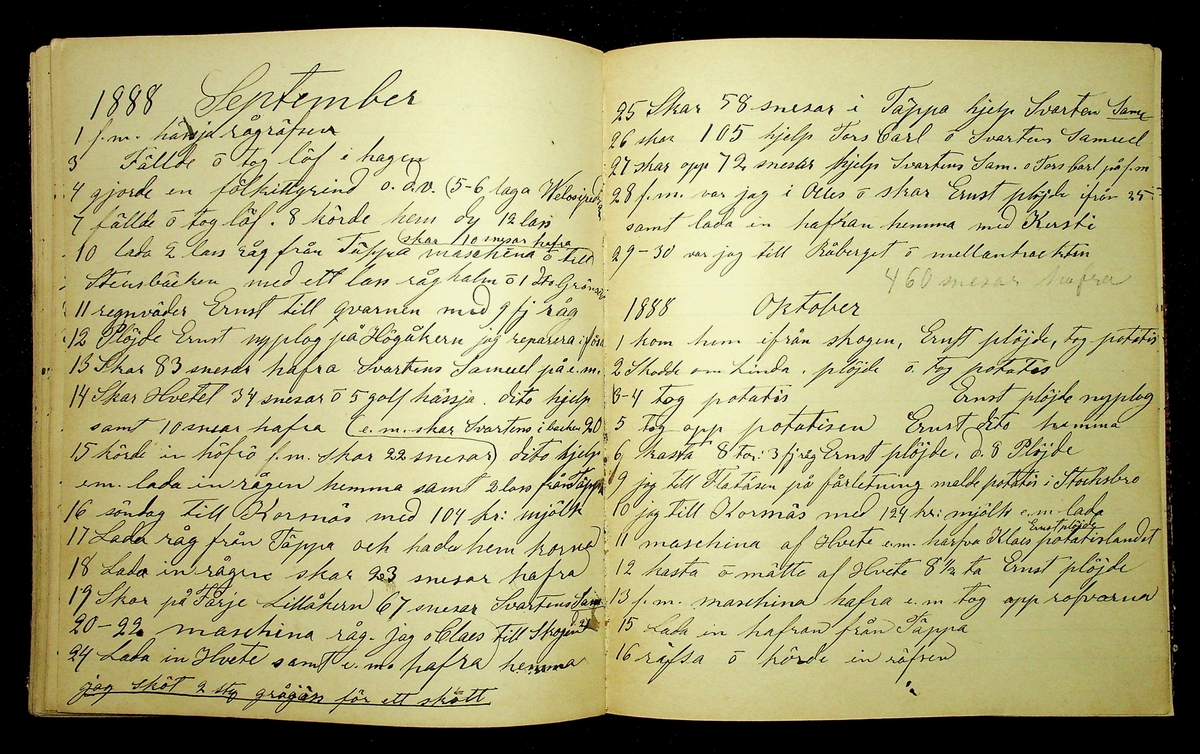 1888 September
1 f.m. hässja rågräfsen
3 Fällde o tog löf i hagen
4 gjorde en fölkittgrind o. d.v. (5-6 laga
7 fällde o tog löf. 8 körde hem dy 12 lass
skar 10 snesar hafra
10 lada 2 lass råg från Täppa maschina o till
Stensbäcken med ett lass råghalm o 1 dito
11 regnväder Ernst till qvarnen med 9 fj råg
12 Plöjde Ernst nyplog på Högåkern jag reparera
13 Skar 83 snesar hafra Svartens Samuel på e.m.
14 Skar Hvetet 34 snesar o 5 golf hässja. dito hjelp
samt 10 snesar hafra (e.m. skar Svartens i backen 20
15 körde in höfrö f.m. skar 22 snesar) dito hjelp
em. lada in rågen hemma samt 2 lass från Täppa
16 söndag till Korsnäs med 104 kr: mjölk
17 Lada råg från Täppa och hade hem korna
18 Lada in rågen skar 23 snesar hafra
19 Skar på Färje Lillåkern 67 snesar Svartens Sam
20-22 maschina råg. jag o Claes till Skogen
24 Lada in Hvete samt e.m. hafra hemma
jag sköt 2 sty grågäss för ett skott
25 Skar 58 snesar i Täppa hjelp Svarten Samu
26 skar 105 hjelp Tors Carl o Svartens Samuel
27 skar opp 72 snesar hjelp Svartens Sam. o Tors Carl på f.m
28 f.m. var jag i Olles o skar Ernst plöjde ifrån 25
samt lada in hafran hemma med Kersti
29-30 var jag till Råberget o mellantrackten
460 snesar hafra
1888 Oktober
1 kom hem ifrån skogen, Ernst plöjde, tog potatis
2 Skodde om Linda. plöjde o tog potates
3-4 tog potatis Ernst plöjde nyplog
5 tog opp potatisen Ernst dito hemma
6 kasta 8 tor: 3 fj råg Ernst plöjde. d. 8 Plöjde
9 jag till Flatåsen på fårletning malde potatis i Stocksbro
10 jag till Kormäs med 124 kr: mjölk e.m. lada
Ernst plöjde
11 maschina af Hvete e.m. harfva Klaes potatislandet
12 kasta o mätte af Hvete 8 1/2 ta Ernst plöjde
13 f.m. maschina hafra e.m tog opp rofvorna
15 Lada in hafran från Täppa
16 räfsa o körde in räfsen